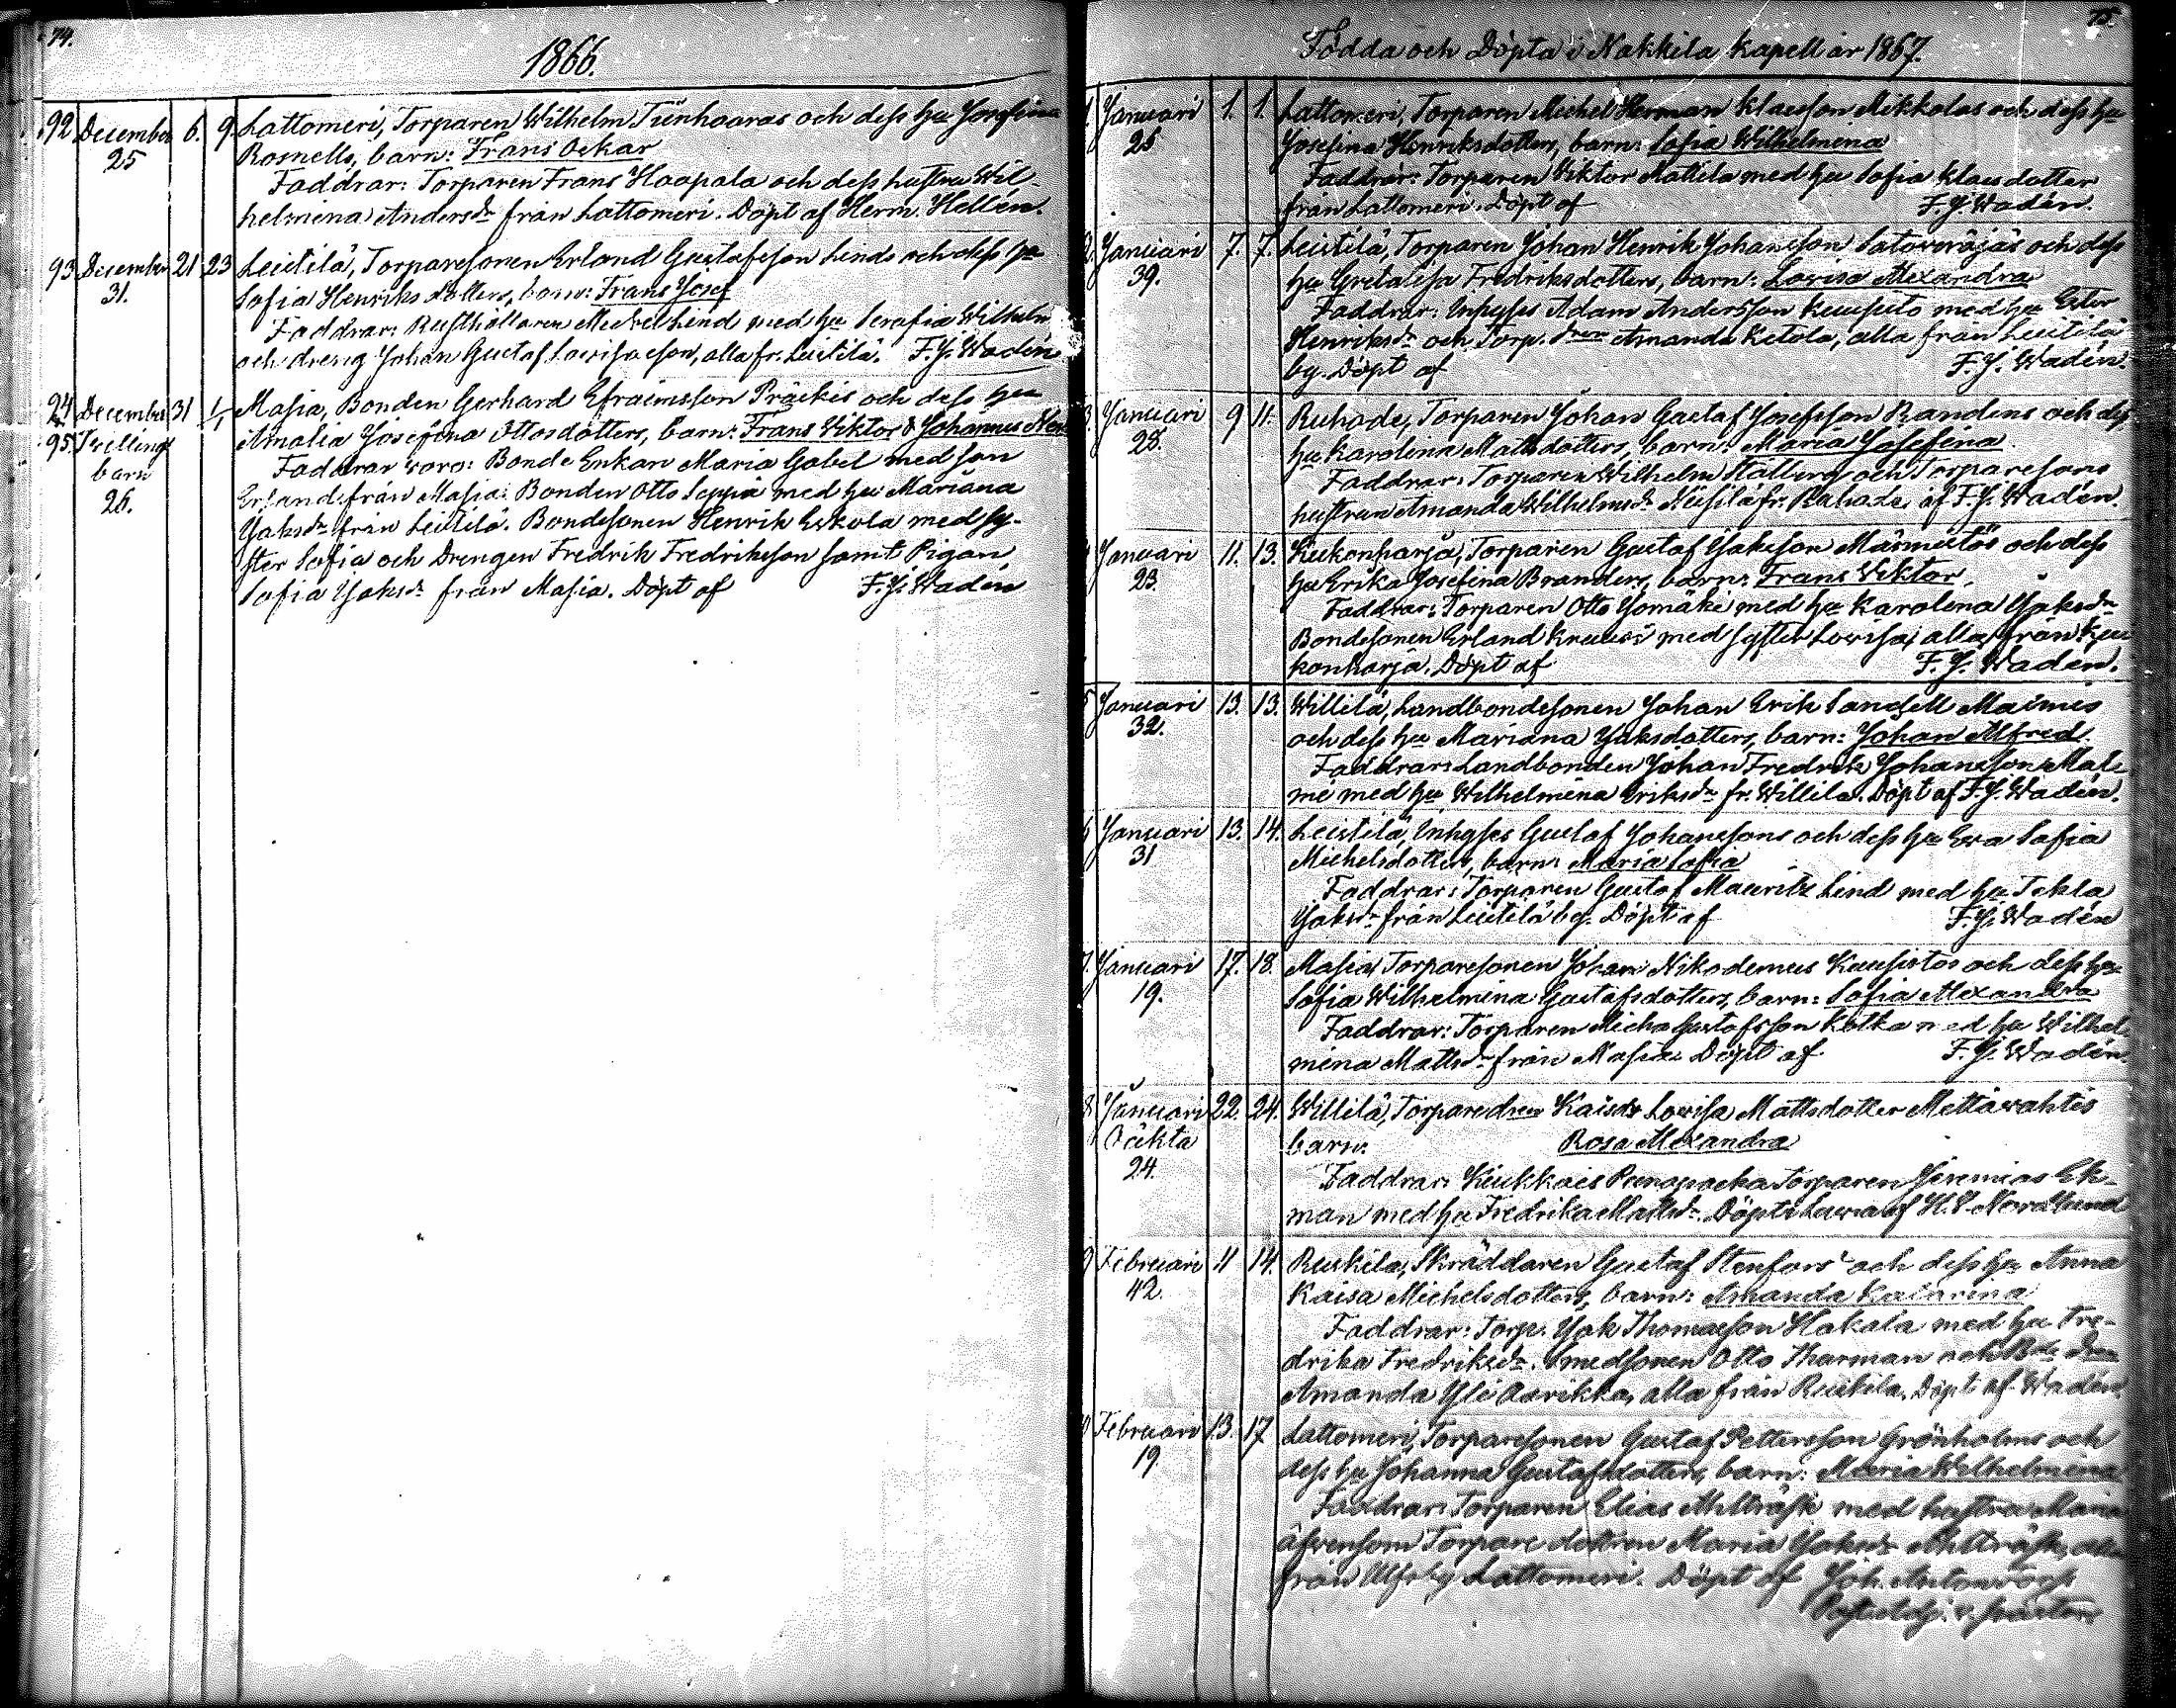 74.
1866.
92 December 6. 9. Lattomeri, Torparen Wilhelm Tiinhaaras och dess hu Josefina
25 Rosnells, barn: Frans Oskar
Faddrar: Torparen Frans Haapala och dess hustru Wil-
helmina Andersdr från Lattomeri. Döpt af Herrn Hellén.
93 December 21 23 Leistilä, Torparesonen Erland Gustafsson Linds och dess hu
31. Sofia Henriksdotters, barn: Frans Josef
Faddrar: Rusthållaren Michel Lind med hu Serafia Wilhelm
och dreng Johan Gustaf Lovisason, alla fr. Leistilä. F. J. Wadén
94 December 31 1/1 Masia, Bonden Gerhard Efraimsson Präckis och dess hu
95. Tvilling Amalia Josefina Ottosdotters, barn: Frans Viktor & Johannes
barn Faddrar voro: Bonde Enkan Maria Gabel med son
26. Erland från Masia. Bonden Otto Seppä med hu Mariana
Jaksdr från Leistilä. Bondesonen Henrik Eskola med sy-
ster Sofia och Drengen Fredrik Fredriksson samt Pigan
Sofia Jaksdr från Masia. Döpt af F. J. Wadén
75.
Födda och Döpta i Nakkila Kapell år 1867.
1. Januari 1. 1. Lattomeri, Torparen Michel Herman Klaesson Mikkolas och dess hu
Josefina Henriksdotters, barn: Sofia Wilhelmina
Faddrar: Torparen Viktor Mattila med hu Sofia Klaesdotter
från Lattomeri. Döpt af F. J. Wadén.
2. Januari 7. 7. Leistilä, Torparen Johan Henrik Johansson och dess
39. hu Greta Lisa Fredriksdotters, barn: Lovisa Alexandra
Faddrar: Inhyses Adam Andersson Kuusisto med hu
Henriksdr och Torp. dren Amanda Ketola, alla från Leistilä
by. Döpt af F. J. Wadén.
3. Januari 9 11. Ruhade, Torparen Johan Gustaf Josefsson Randens och dess
28. hu Karolina Mattsdotters, barn: Maria Josefina
Faddrar: Torparen Wilhelm Stalberg och Torparesons
hustrun Amanda Wilhelmsdr fr. Ruhade. af F. J. Wadén.
Januari 11. 13. Kiukonharja, Torparen Gustaf Jaksson och dess
23. hu Erika Josefina Branders, barn: Frans Viktor.
Faddrar: Torparen Otto Jomäki med hu Karolina Jaksdr
Bondesonen Erland med syster Lovisa, alla från Kiu
konharja. Döpt af F. J. Wadén.
5 Januari 13. 13. Willilä, Landbondesonen Johan Erik Sandell
32. och dess hu Mariana Jaksdotters, barn: Johan Alfred.
Faddrar: Landbonden Johan Fredrik Johansson Mal-
mi med hu Wilhelmina Eriksdr fr. Willilä. Döpt af F. J. Wadén.
6 Januari 13. 14. Leistilä, Inhyses Gustaf Johanssons och dess hu Eva Sofia
31 Michelsdotters, barn: Maria Sofia
Faddrar: Torparen Gustaf Mauritz Lind med hu Tekla
Jaksdr från Leistilä by. Döpt af F. J. Wadén
7. Januari 17. 18. Masia, Torparesonen Johan Nikodemus Kuusistos och dess hu
19. Sofia Wilhelmina Gustafsdotters, barn: Sofia Alexandra
Faddrar: Torparen Micha Gustafsson Kotka med hu Wilhel-
mina Mattsdr från Masia. Döpt af F. J. Wadén.
8. Januari 22. 24. Willilä, Torparedren Kaisa Lovisa Mattsdotter Mettävahtis
Oäkta barn: Rosa Alexandra
24. Faddrar: Kiukkais Torparen Jeremias Ek-
man med hu Fredrika Mattsdr. Döpt i af
9 Februari 11 14. Ruskila, Skräddaren Gustaf Stenfors och dess hu Anna
42. Kaisa Michelsdotters, barn: Amanda Katarina
Faddrar: Torp. Jak Thomasson Hakala med hu Fre-
drika Fredriksdr. Smedsonen Otto Tharman och
Amanda Yli Aarikka, alla från Ruskila. Döpt af Wadén.
Februari 13. 17 Lattomeri, Torparesonen Gustaf Pettersson Grönholms och
19. dess hu Johanna Gustafsdotters, barn: Maria Wilhelmina
Faddrar: Torparen Elias Ahlträsk med hustru Maria
äfvensom Torpare dottren Maria Jaksdr Ahlträsk, alla
från Ulfsby Lattomeri. Döpt af Joh.